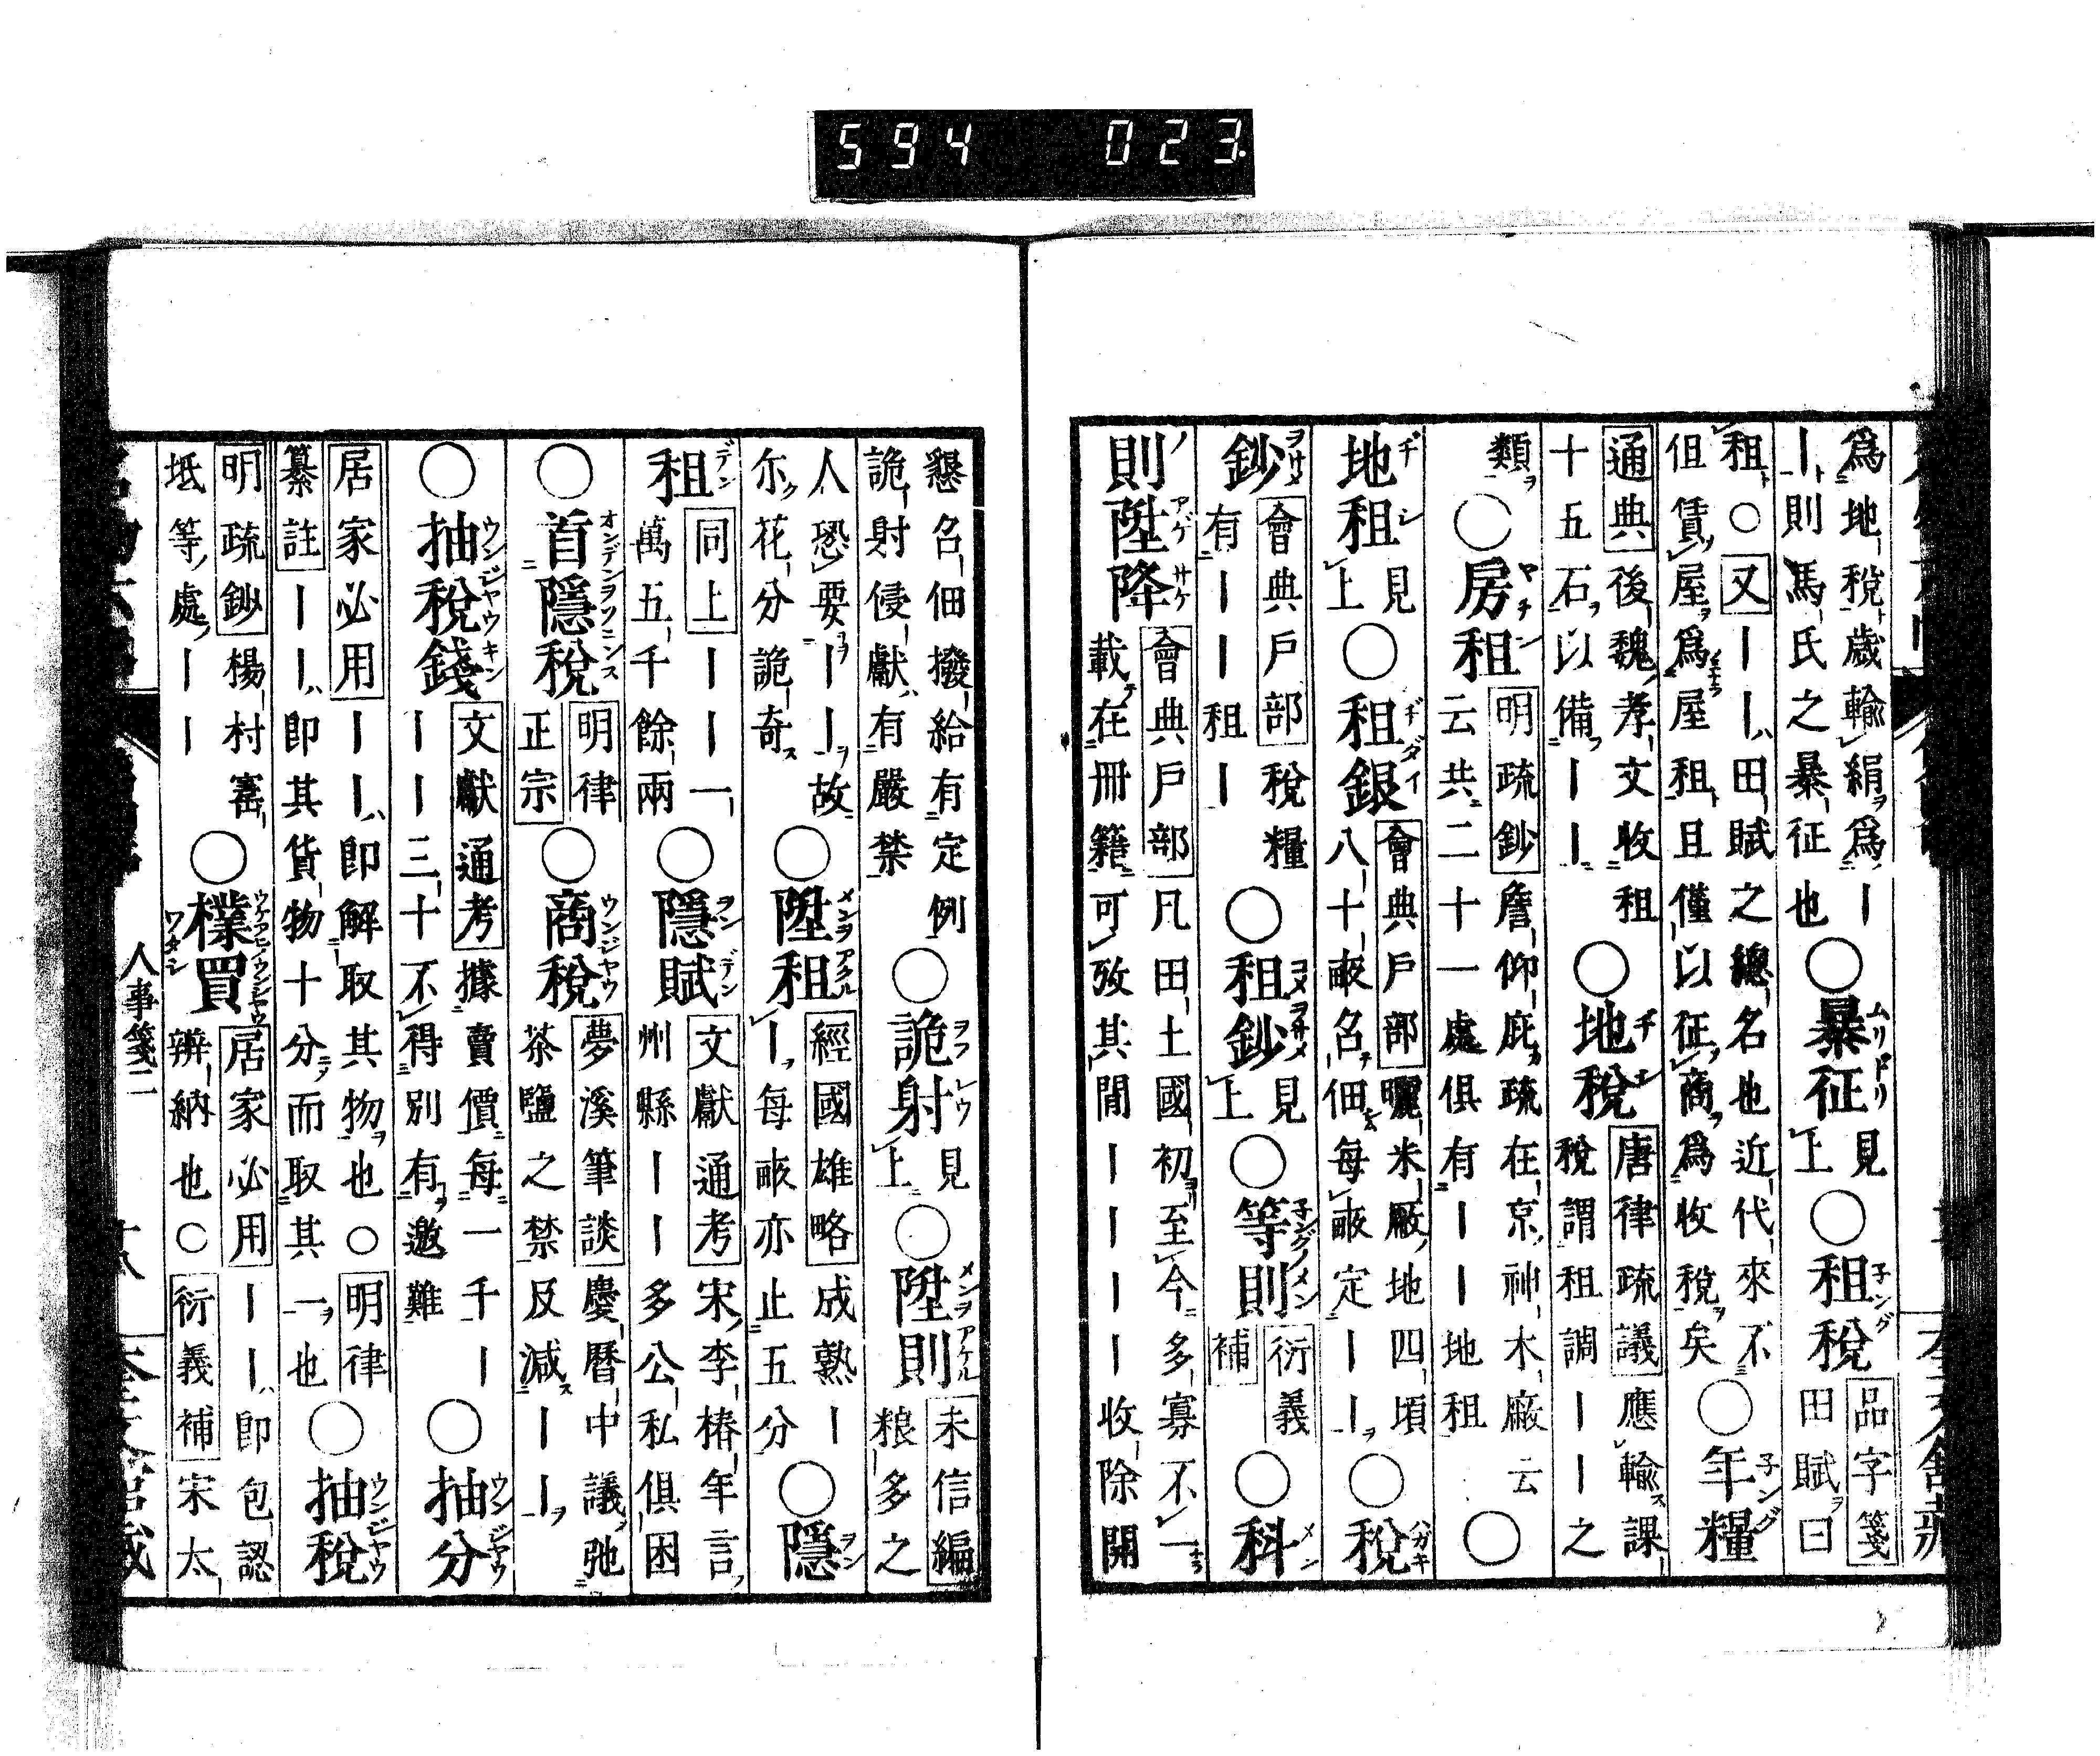 594 023
爲地税歳輸絹爲｜
｜則馬氏之暴征也
○暴征
見上
○租税
品字箋
田賦曰
租○又｜｜田賦之總名也近代來不
但賃屋爲屋租且僅以征商爲收税矣
○年糧
通典後魏孝文收租
十五石以備｜｜
○地税
唐律疏議應輸課
税謂租調｜｜之
類
○房租
明疏鈔詹仰庇疏在京神木廠云
云共二十一處俱有｜｜地租
○
地租
見上
○租銀
會典戸部曬米廠地四頃
八十畝名佃毎畝定｜｜
○税
鈔
會典戸部税糧
有｜｜租｜
○租鈔
見上
○等則
衍義
補
○科
則陞降
會典戸部凡田土國初至今多寡不一
載在冊籍可攷其間｜｜｜｜收除開
懇名佃撥給有定例
詭射侵獻有嚴禁
○詭射
見上
○陞則
未信編
粮多之
人恐要｜｜故
尓花分詭竒
○陞租
經國雄略成熟｜
｜毎畝亦止五分
○隱
租
同上｜｜一
萬五千餘兩
○隱賦
文獻通考宋李椿年言
州縣｜｜多公私俱困
○首隱税
明律
正宗
○商税
夢溪筆談慶曆中議弛
茶鹽之禁及減｜｜
○抽税錢
文獻通考據賣價毎一千｜
｜｜三十不得別有邀難
○抽分
居家必用｜｜即解取其物也○明律
纂註｜｜即其貨物十分而取其一也
○抽税
明疏鈔楊村窰
坻等處｜｜
○樸買
居家必用｜｜即包認
辨納也○衍義補宋太
人事箋二